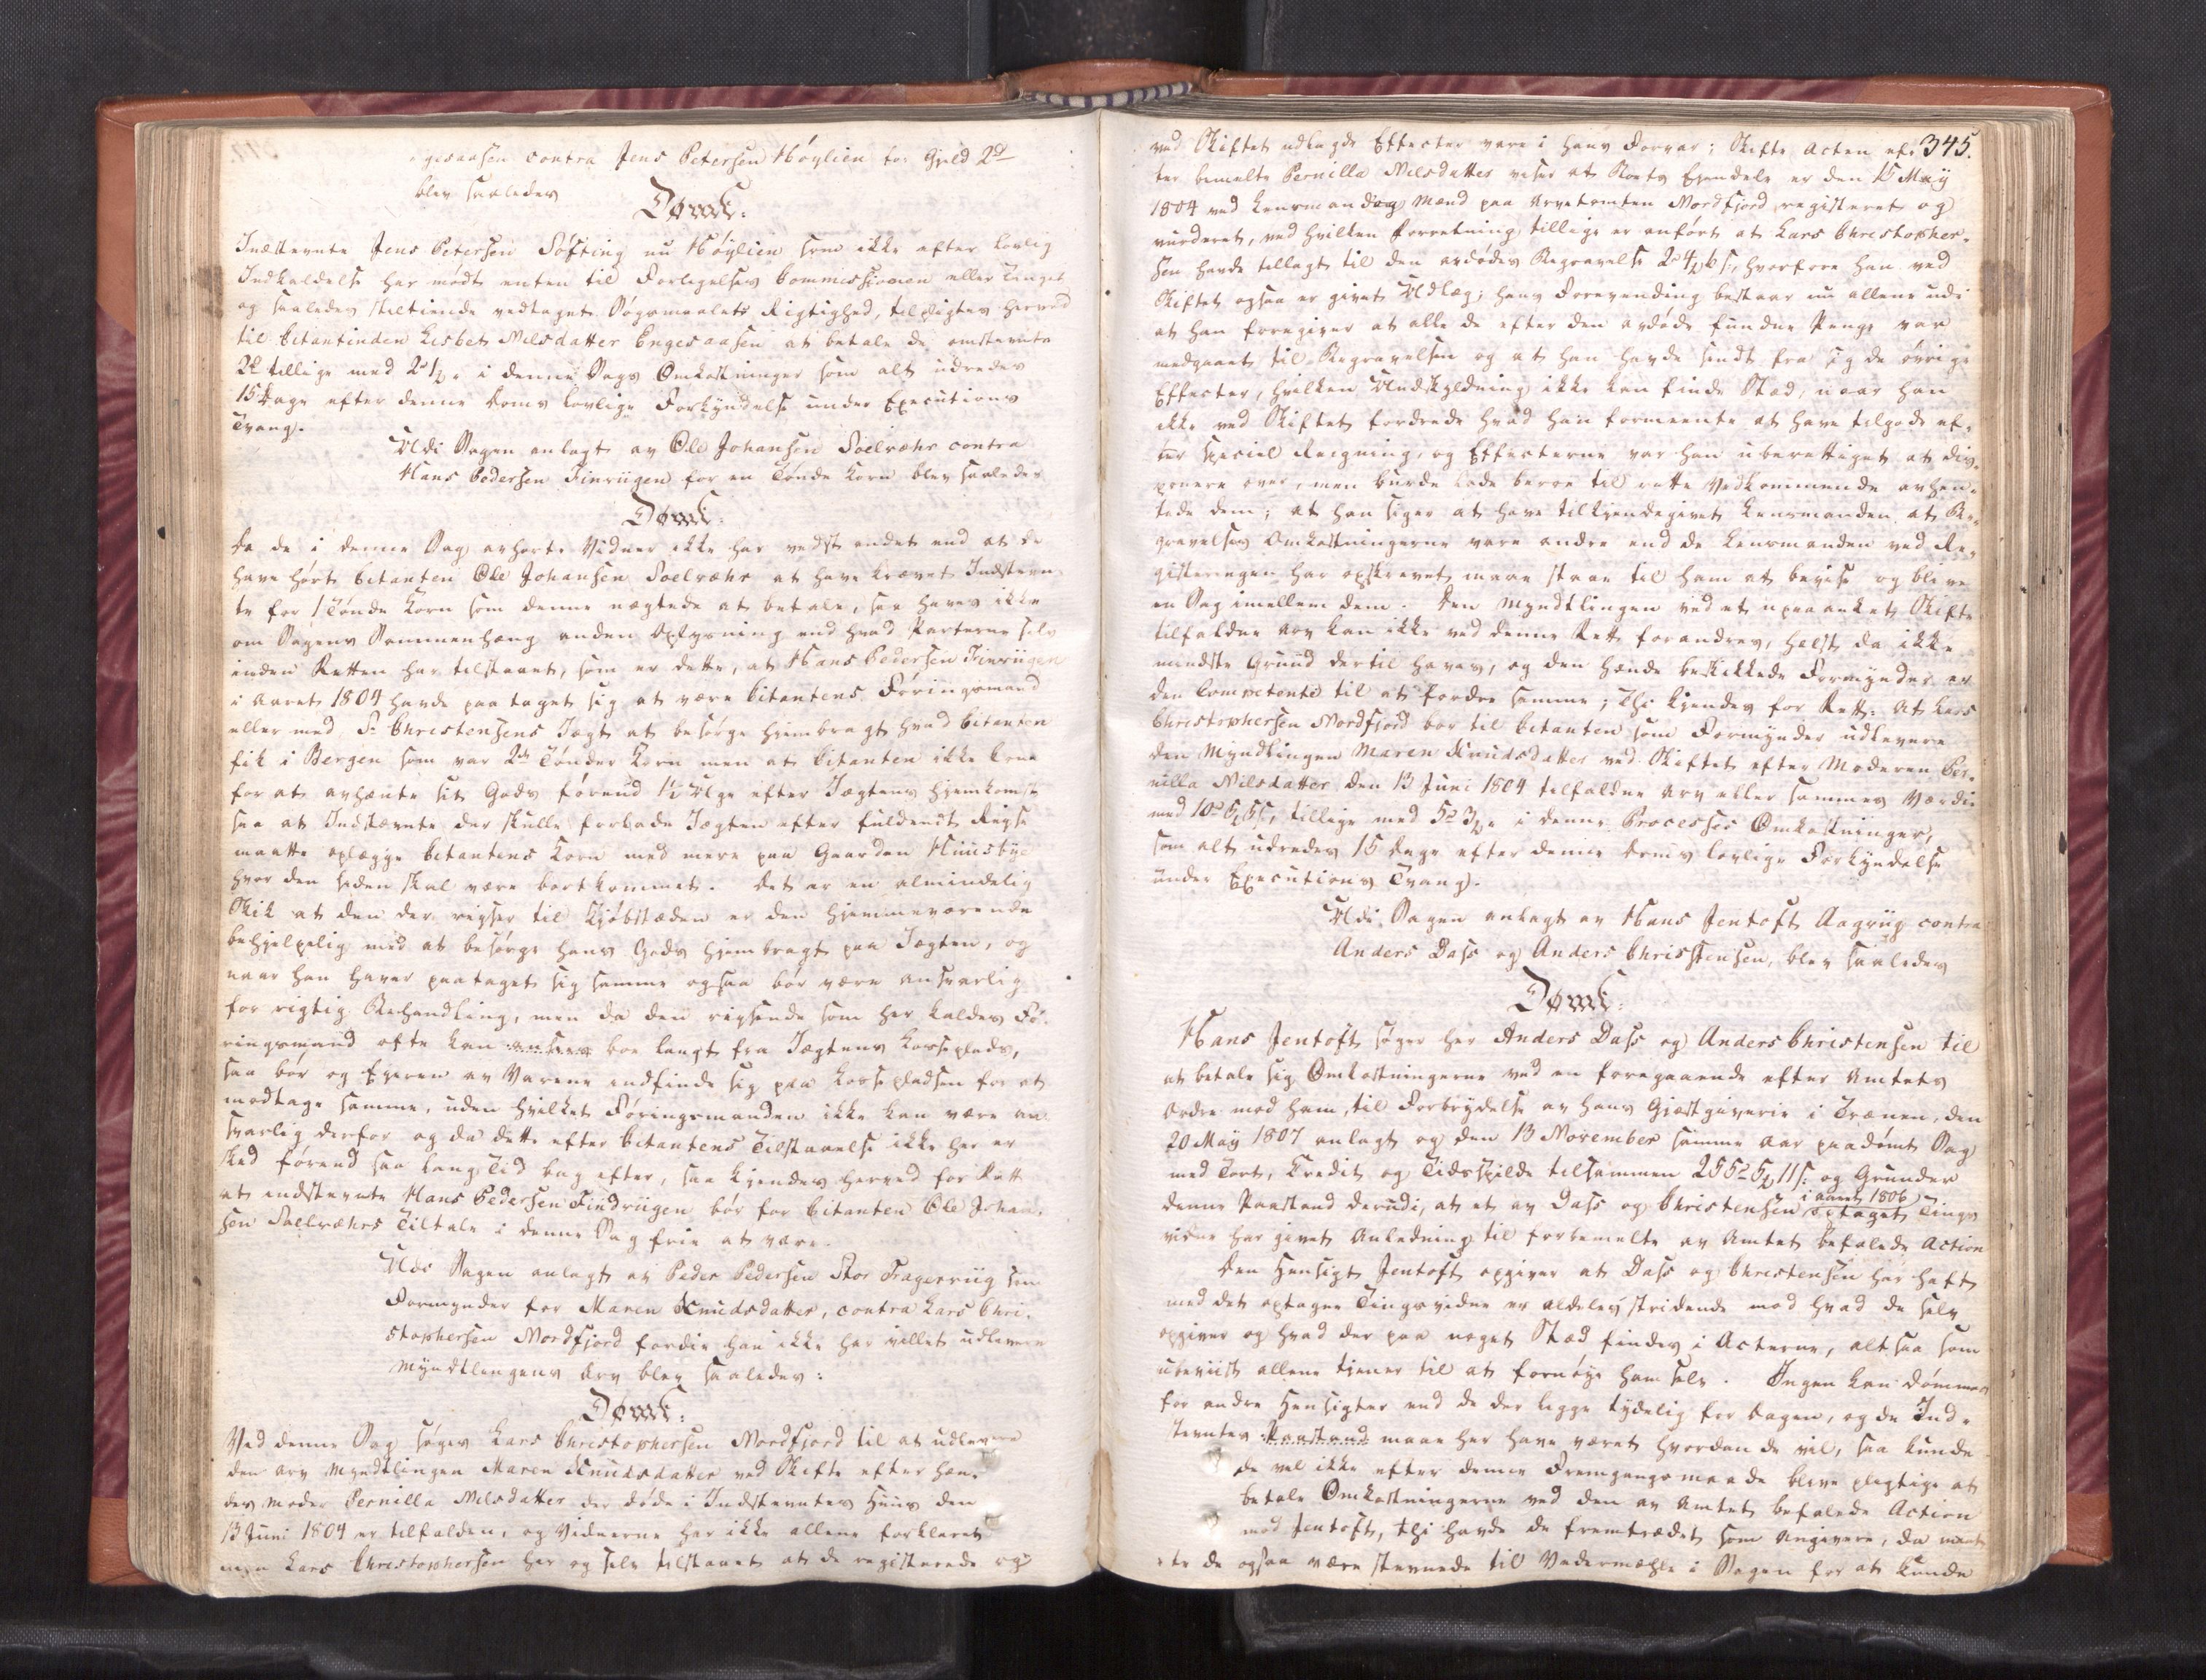 Engesaasen contra Jens Petersen Høylien for Gjeld 2rd
blev saaledes
Dømt:
Indstevnte Jens Petersen Søfting nu Høylien som ikke efter lovlig
Indkaldelse har mødt enten til Forligelses Commissionen eller Tinget
og saaledes stiltiende vedtaget Søgsmaalets Rigtighed, tilpligtes herved
til Citantinden Lisbet Nilsdatter Engesaasen at betale de omstevnte
2rd tillige med 2rd 1/2 i denne Sags Omkostninger som alt udredes
15 Dage efter denne Doms lovlige Forkyndelse under Executions
Tvang.
Udi Sagen anlagt av Ole Johansen Soelvæhr contra
Hans Pedersen Finriigen for en Tønde Korn blev saaledes
Dømt:
Da de i denne Sag avhørte Vidner ikke har vedst andet end at de
have hørt Citanten Ole Johansen Soelvæhr at have krævet Indstevn
te for 1 Tønde Korn som denne nægtede at betale, saa haves ikke
om Sagens Sammenhæng anden Oplysning end hvad Parterne selv
inden Retten har tilstaaet, som er dette, at Hans Pedersen Finriigen
i Aaret 1804 havde paa taget sig at være Citantens Føringsmand
eller med Sr Christensens Jægt at besørge hiembragt hvad Citanten
fik i Bergen som var 2de Tønder Korn men at Citanten ikke kom
for at avhænte sit Gods førend 1½ Uge efter Jægtens Hjemkomst
saa at Indstævnte der skulle forlade Jægten efter fuldendt Reyse
maatte oplægge Citantens Korn med mere paa Gaarden Huusbye
hvor den siden skal være bortkommet. Det er en almindelig
Skik at den der reyser til Kjøbstæden er den hjemmeværende
behjelpelig med at besørge hans Gods hjembragt paa Jægten, og
naar han haver paataget sig samme ogsaa bør være ansvarlig
for rigtig Behandling, men da den reysende som her kaldes Fø-
ringsmand ofte kan boe langt fra Jægtens Losseplads,
saa bør og Eyeren av Varene indfinde sig paa Lossepladsen for at
modtage samme, uden hvilket Føringsmanden ikke kan være an
svarlig derfor og da dette efter Citantens Tilstaaelse ikke her er
sked førend saa lang Tid bag efter, saa kjendes herved for Rett
at indstevnte Hans Pedersen Findriigen bør for Citanten Ole Johan-
sen Soelvæhrs Tiltale i denne Sag frie at være.
Udi Sagen anlagt av Peder Pedersen Stor Fragerviig som
Formynder for Maren Knudsdatter, contra Lars Chri-
stophersen Nordfjord fordie han ikke har villet udlevere
Myndtlingens Arv blev saaledes:
Dømt:
Ved denne Sag søges Lars Christophersen Nordfjord til at udlevere
den Arv Myndtlingen Maren Knudsdatter ved Skifte efter hæn-
des Moder Pernilla Nilsdatter der døde i Indstevntes Huus den
13 Juni 1804 er tilfalden, og Vidnerne har ikke allene forklaret
men Lars Christophersen har og selv tilstaaet at de registerede og
345.
ved Skiftet udlagde Effecter vare i hans Forvar; Skifte Acten ef-
ter bemelte Pernilla Nilsdatter viser at Boets Eyendele er den 15 May
1804 ved Lensmand og Mænd paa Arvetomten Nordfjord registeret og
vurderet, ved hvilken Forretning tillige er anført at Lars Christopher-
sen havde tillagt til den avdødes Begravelse 2rd 4 6 s, hvorfore han ved
Skiftet ogsaa er givet Udlæg; hans Forevending bestaar nu allene udi
at han foregiver at alle de efter den avdøde fundne Penge var
medgaaet til Begravelsen og at han havde sendt fra sig de øvrige
Effecter, hvilken Undskyldning ikke kan finde Stæd, naar han
ikke ved Skiftet fordrede hvad han formeente at have tilgode ef-
ter special Reigning, og Effecterne var han uberettiget at dis-
ponere over, men burde lade beroe til rette Vedkommende avhen-
tede dem; at han siger at have tilkjendegivet Lensmanden at Be-
gravelses Omkostningerne vare andre end de Lensmanden ved Re-
gisteringen har opskrevet maae staae til ham at bevise og blive
en Sag imellem dem. Den Myndtlingen ved et upaaanket Skifte
tilfaldne Arv kan ikke ved denne Rett forandres, helst da ikke
mindste Gruud dertil haves, og den hænde beskikkede Formynder er
den Competente til at fordre samme; Thi kjendes for Rett: At Lars
Christophersen Nordfjord bør til Citanten som Formynder udlevere
den Myndlingen Maren Knudsdatter ved Skiftet efter Moderen Per-
nilla Nilsdatter den 13 Juni 1804 tilfaldne Arv eller sammes Værdie
med 10rd 5 5 s, tillige med 5rd 3 i denne Processes Omkostninger,
som alt udredes 15 Dage efter denne Doms lovlige Forkyndelse
under Executions Tvang.
Udi Sagen anlagt av Hans Jentoft Aagviig contra
Anders Dass og Anders Christensen, blev saaledes
Dømt:
Hans Jentoft søger her Anders Dass og Anders Christensen til
at betale sig Omkostningerne ved en foregaaende efter Amtets
Ordre mod ham, til Forbrydelse av hans Gjæstgiverie i Trænen, den
20 May 1807 anlagt og den 13 November samme Aar paadømt Sag
med Tort, Kredit og Tidsspilde tilsammen 255rd 5 11 s: og Grunder
denne Paastand derudi, at et av Dass og Christensen i aaret 1806 optaget Tings
vidne har givet Anledning til forbemelte av Amtet befalede Action
Den Hensigt Jentoft opgiver at Dass og Christensen har haft
med det optagne Tingsvidne er aldeles stridende mod hvad de selv
opgiver og hvad der paa noget Stæd findes i Acterne, altsaa som
ubeviist allene tjener til at fornøye ham selv. Ingen kan dømmes
for andre Hensigter end de der ligge tydelig for Dagen, og de Ind-
stevntes Paastand maae her have været hvordan de vil, saa kunde
de vel ikke efter denne Fremgangsmaade bleve plegtige at
betale Omkostningerne ved den av Amtet befalede Action
mod Jentoft, thi havde de fremtrædet som Angivere, da maat
te de ogsaa være stevnede til Vedermæhle i Sagen for at kunde